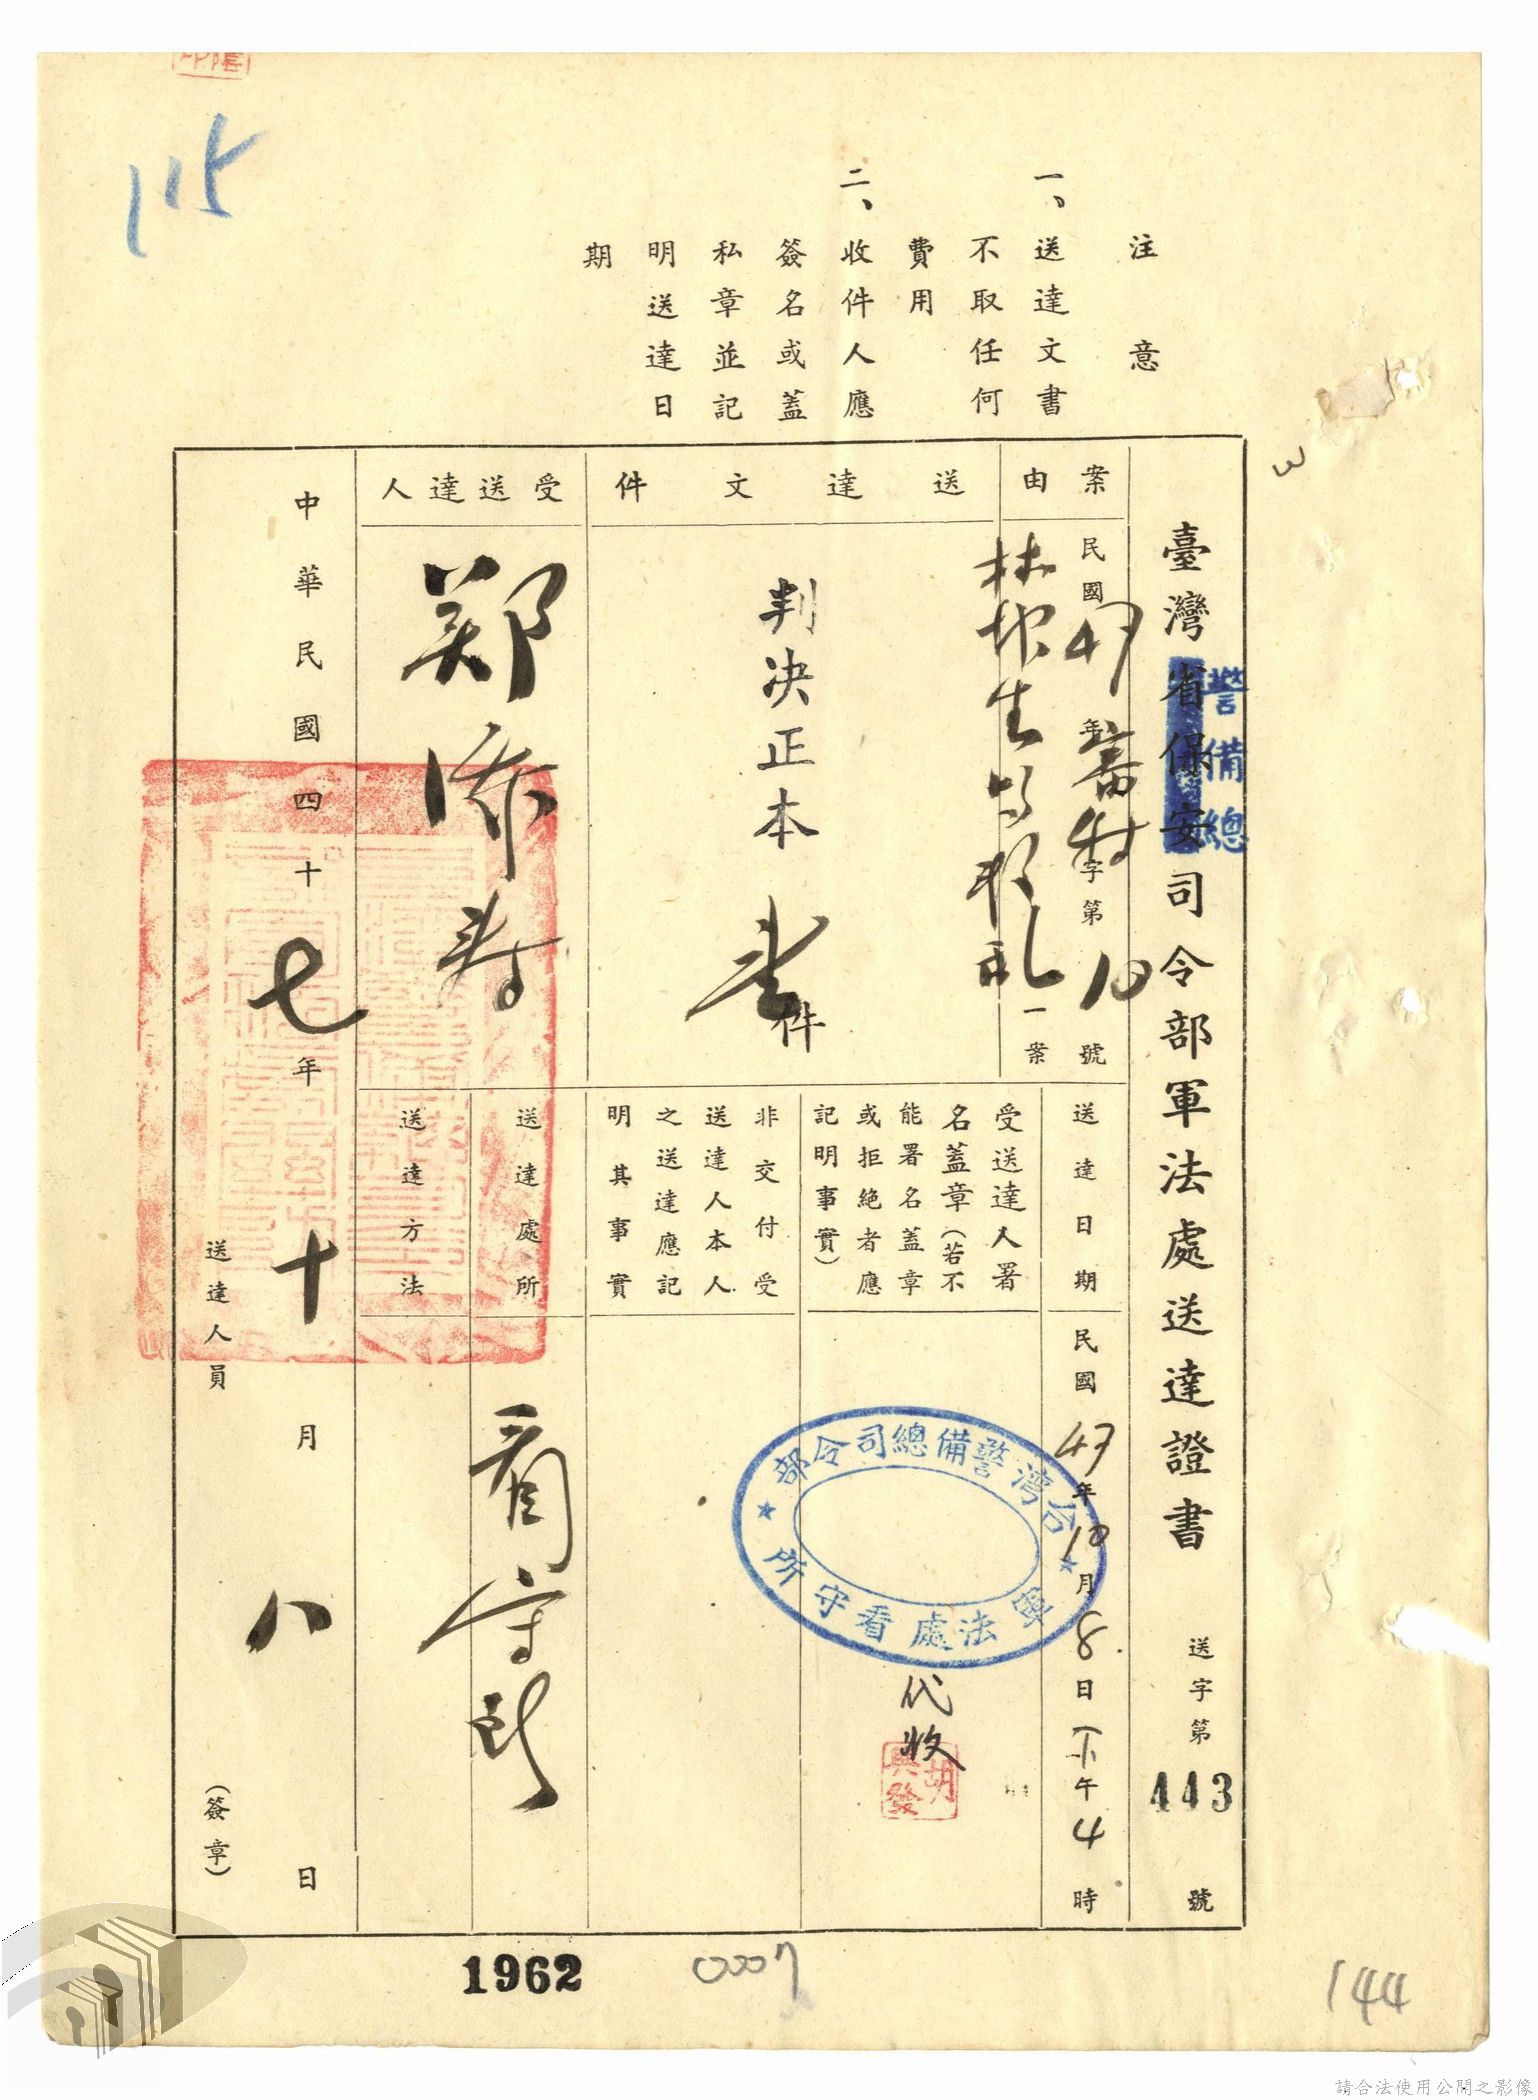 臺灣省保安司令部軍法處送達證書
警備總
送字第443號
案由
民國47年審特字第10號
林坤生等叛亂一案
送達文件
判決正本壹件
受送達人
鄭添壽
送達日期
民國47年10月8日下午4時
受送達人署
名蓋章(若不
能署名蓋章
或拒絕者應
記明事實)
台灣警備總司令部
軍法處看守所
代收
胡興發
非交付受
送達人本人
之送達應記
明其事實
送達處所
看守所
送達方法
中華民國四十七年十月八日
送達人員
(簽章)
注意
一、送達文書
不取任何
費用
二、收件人應
簽名或蓋
私章並記
明送達日
期
115
3
1962
0007
144
請合法使用公開之影像